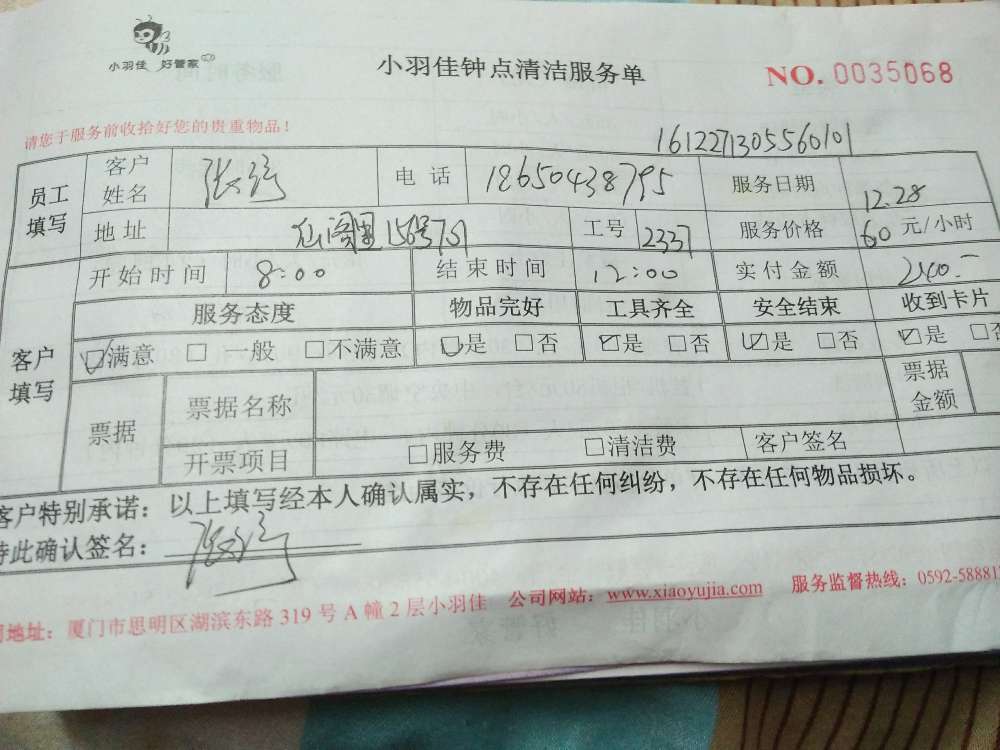 小羽佳 好管家
小羽佳钟点清洁服务单
NO. 0035068
请您于服务前收拾好您的贵重物品!
1612271305560101
员工填写 客户姓名 张 电话 18650438795 服务日期 12.28
地址 工号 2337 服务价格 60 元/小时
客户填写 开始时间 8:00 结束时间 12:00 实付金额 240.-
服务态度 物品完好 工具齐全 安全结束 收到卡片
☑满意 □一般 □不满意 ☑是 □否 ☑是 □否 ☑是 □否 ☑是 □否
票据 票据名称 票据金额
开票项目 □服务费 □清洁费 客户签名
客户特别承诺:以上填写经本人确认属实,不存在任何纠纷,不存在任何物品损坏。
特此确认签名:
地址:厦门市思明区湖滨东路 319 号 A 幢 2 层小羽佳 公司网站:www.xiaoyujia.com 服务监督热线:0592-58881